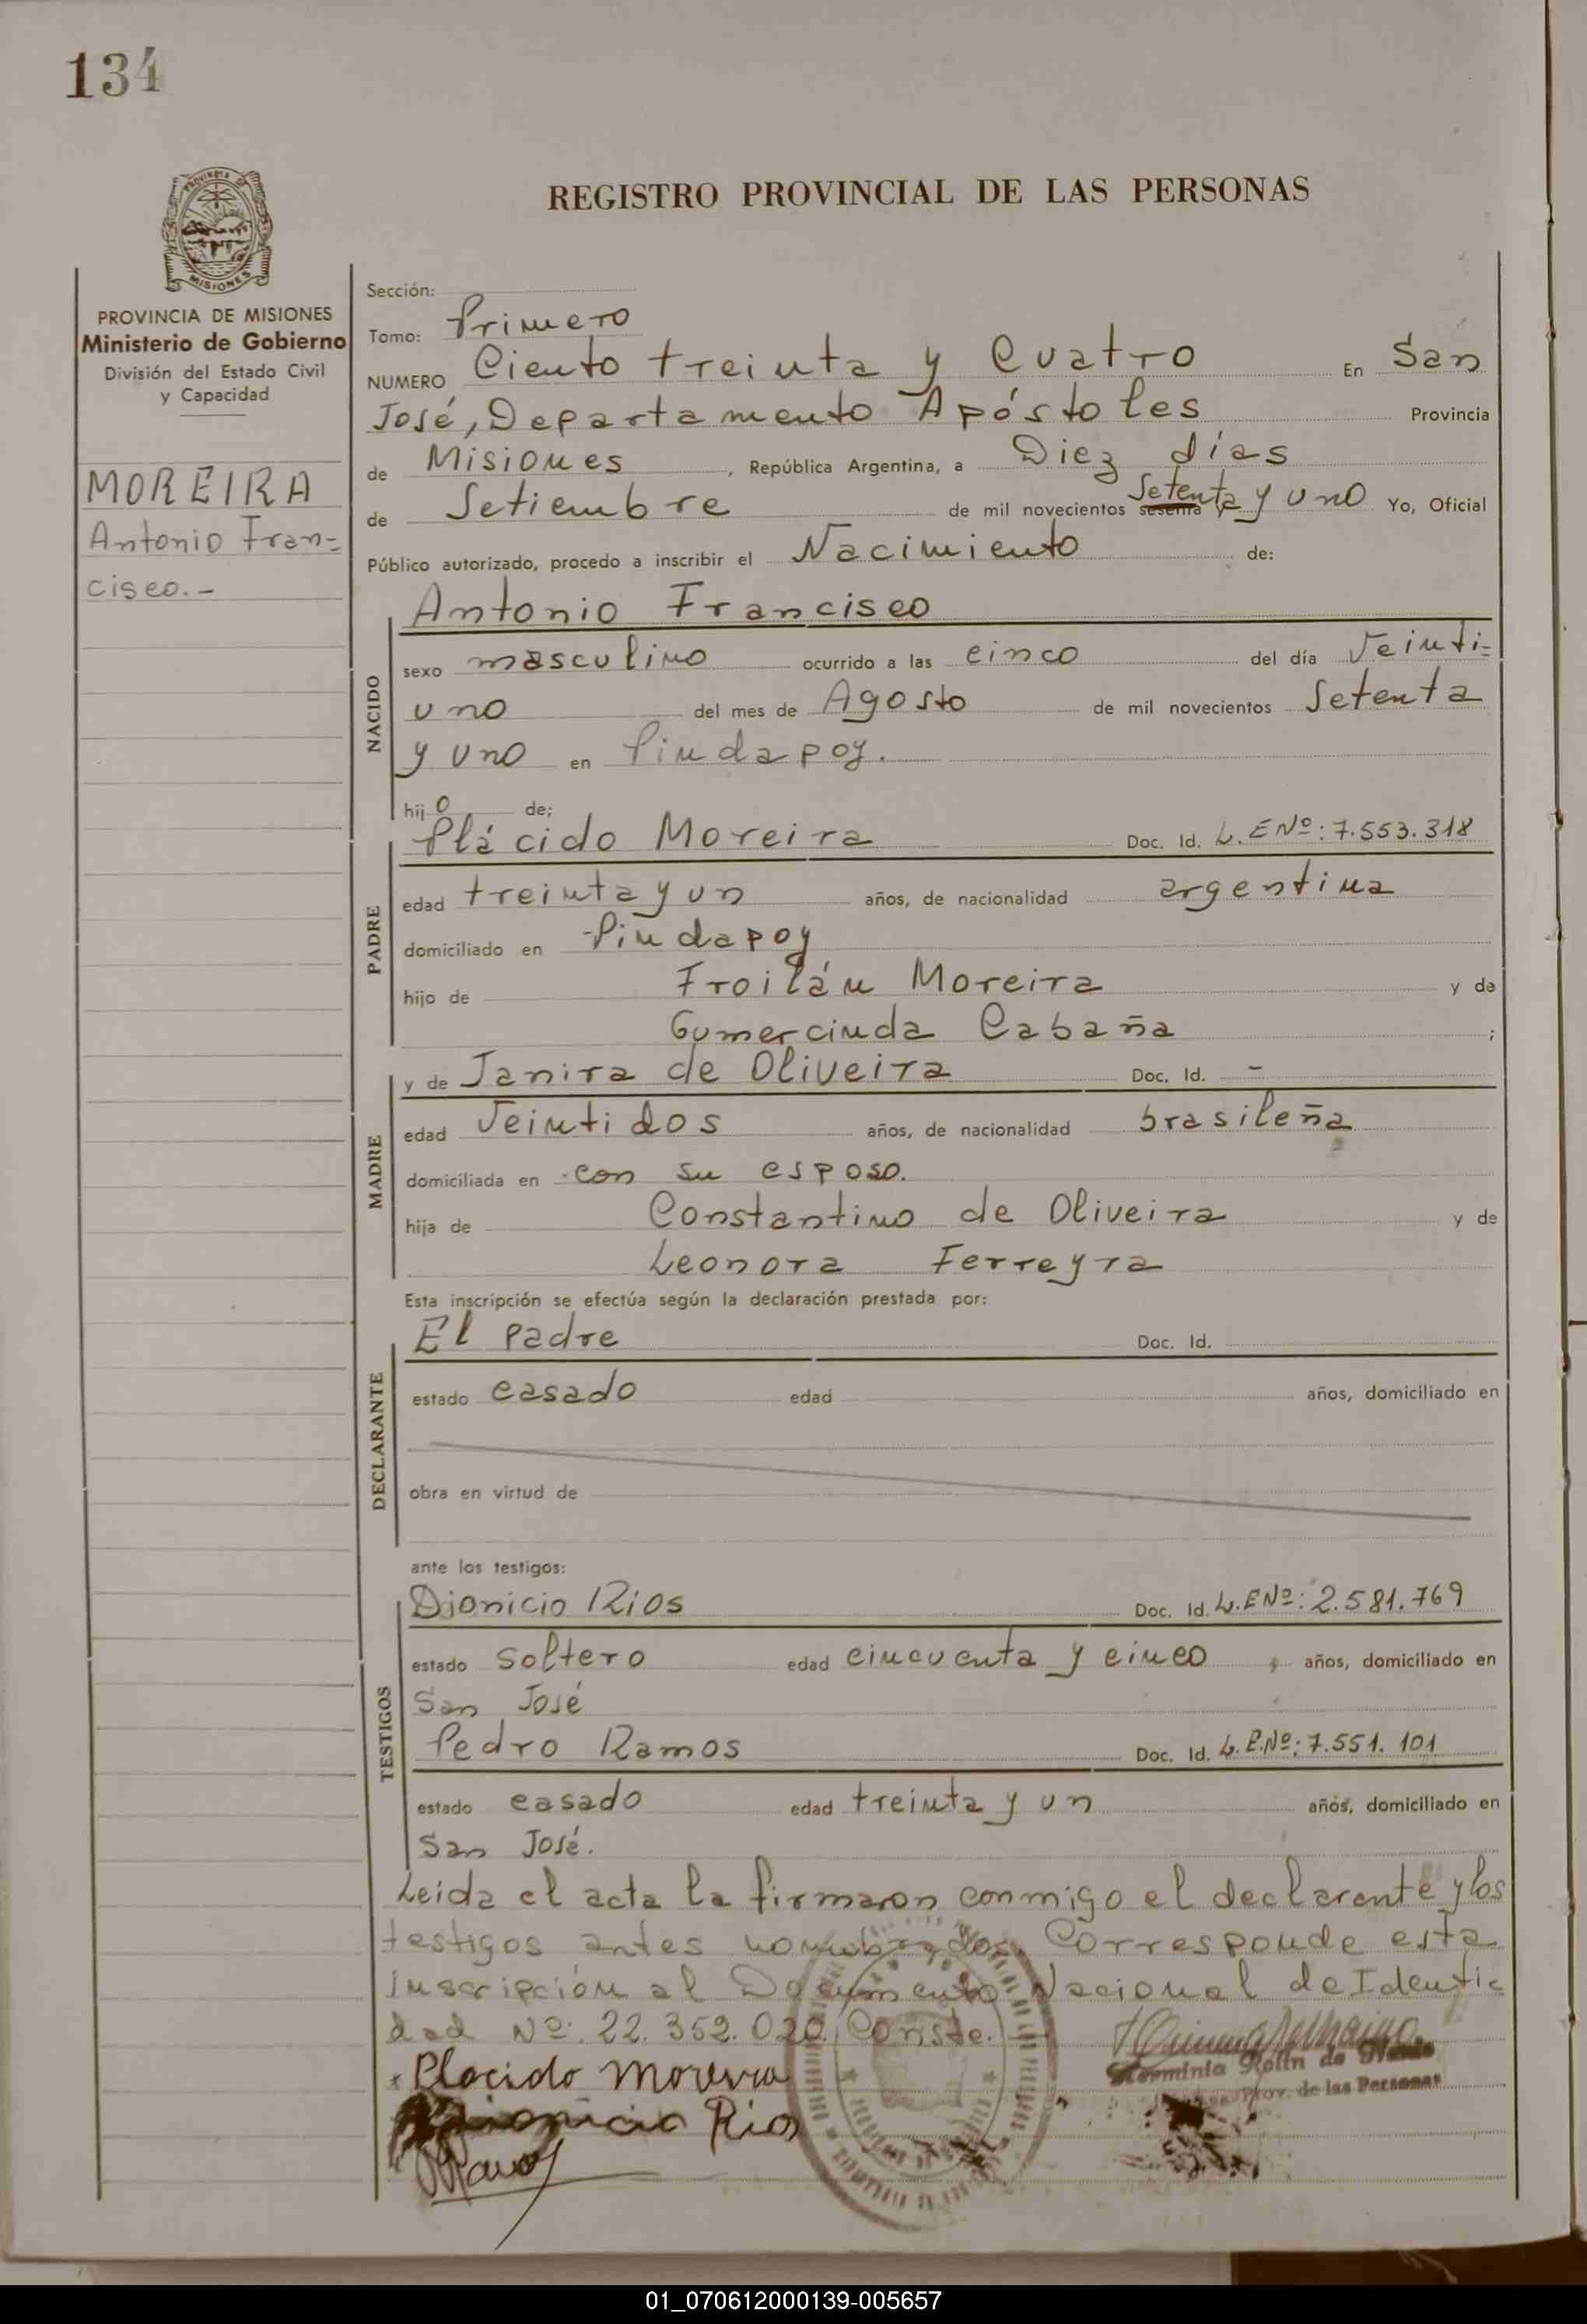 134
REGISTRO PROVINCIAL DE LAS PERSONAS
MISIONES
PROVINCIA DE MISIONES
Ministerio de Gobierno
División del Estado Civil
y Capacidad
MOREIRA
Antonio Fran=
cisco.-
Sección:
Tomo: Primero
NUMERO Ciento treinta y Cuatro En San
José, Departamento Apóstoles Provincia
de Misiones, República Argentina, a Diez días
de Setiembre de mil novecientos sesenta Setenta y uno Yo, Oficial
Público autorizado, procedo a inscribir el Nacimiento de:
Antonio Francisco
NACIDO
sexo masculino ocurrido a las cinco del día Veinti=
uno del mes de Agosto de mil novecientos Setenta
y uno en Pindapoy.
hijo de;
Plácido Moreira Doc. Id. L. E Nº: 7.553.318
PADRE
edad treinta y un años, de nacionalidad argentina
domiciliado en Pindapoy
hijo de Froilán Moreira y de
Gumercinda Cabaña ;
y de Janira de Oliveira Doc. Id. -
MADRE
edad Veintidos años, de nacionalidad brasileña
domiciliada en con su esposo.
hija de Constantino de Oliveira y de
Leonora Ferreyra
Esta inscripción se efectúa según la declaración prestada por:
El padre Doc. Id.
DECLARANTE
estado casado edad años, domiciliado en
obra en virtud de
ante los testigos:
Dionicio Rios Doc. Id. L. E Nº: 2.581.769
TESTIGOS
estado soltero edad cincuenta y cinco años, domiciliado en
San José
Pedro Ramos Doc. Id. L. E. Nº: 7.551.101
estado casado edad treinta y un años, domiciliado en
San José.
Leida el acta la firmaron conmigo el declarante y los
testigos antes nombrados. Corresponde esta
inscripción al Documento Nacional de Identi-
dad Nº: 22.352.020. Conste.
Herminia Rolin de
Prov. de las Personas
Placido Moreira
Dionicio Rios
Ramos
01_070612000139-005657